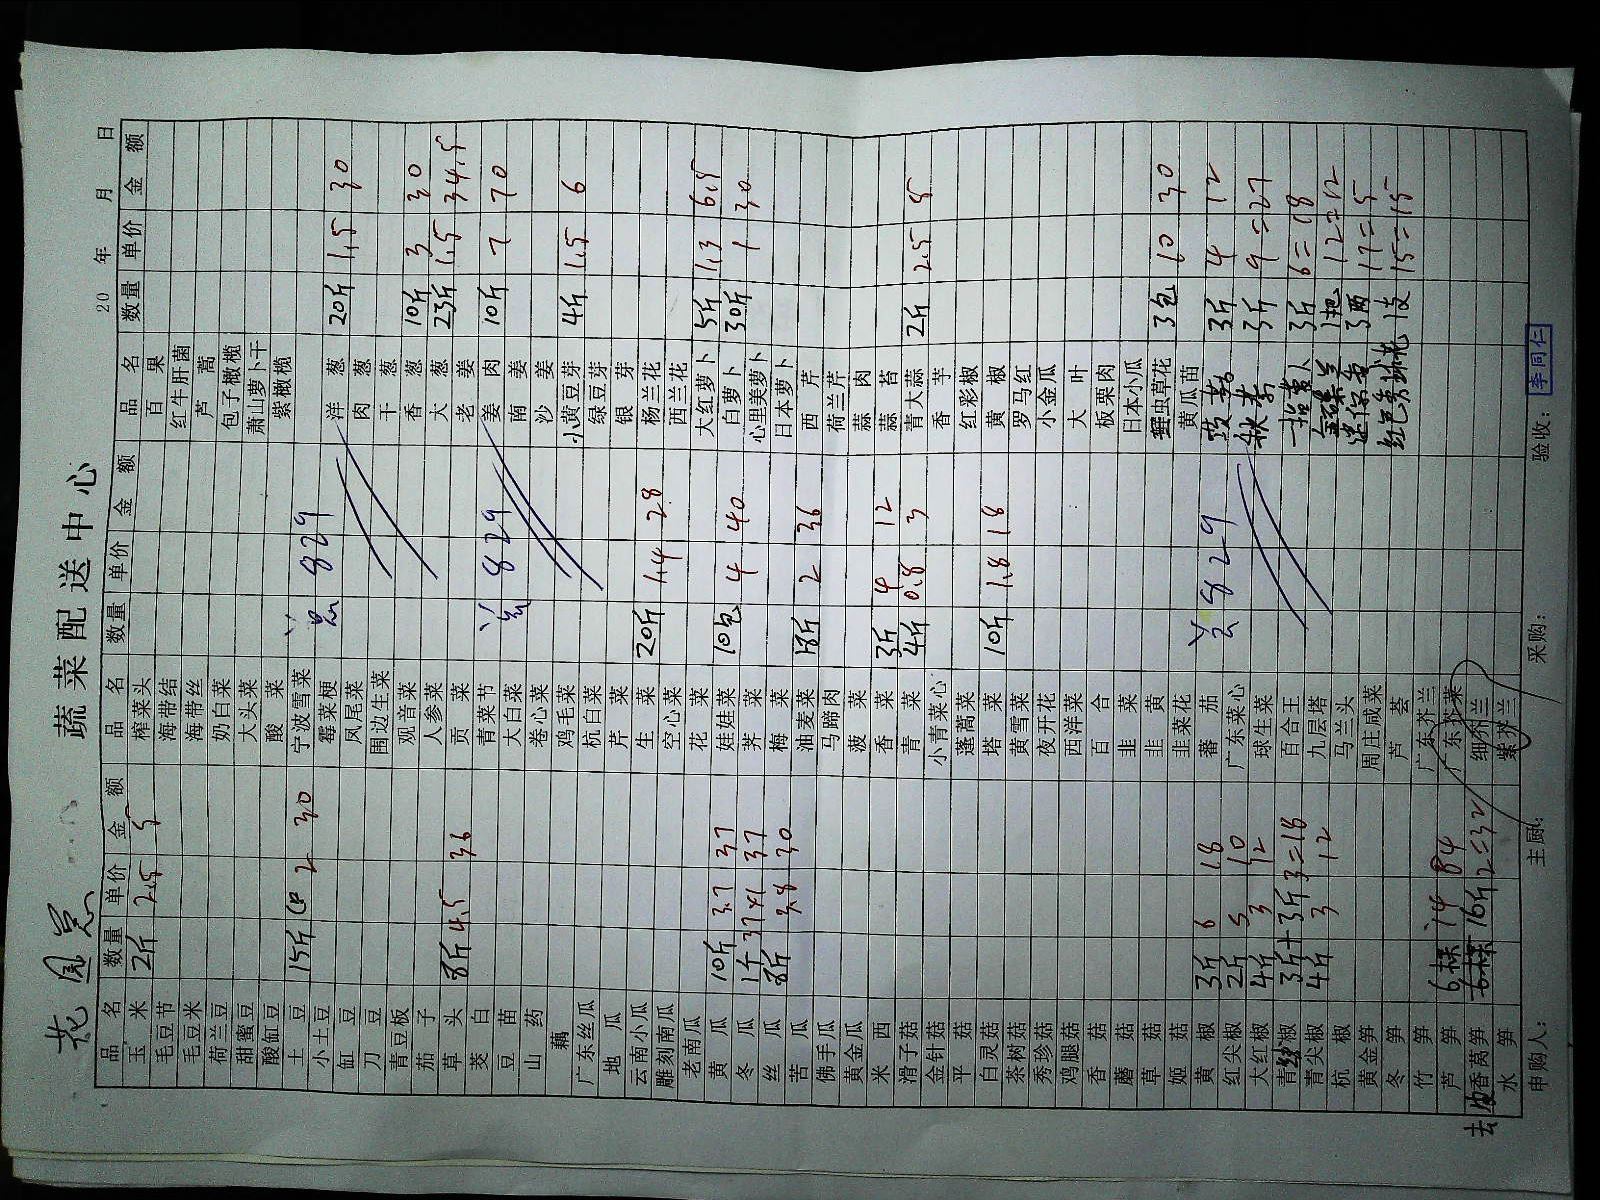 蔬菜配送中心
20 年 月 日
品名 数量 单价 金额 品名 数量 单价 金额 品名 数量 单价 金额
玉米 2斤 2.5 5 榨菜头 百果
毛豆节 海带结 红牛肝菌
毛豆米 海带丝 芦蒿
荷兰豆 奶白菜 包子橄榄
甜蜜豆 大头菜 萧山萝卜干
酸缸豆 酸菜 紫橄榄
土豆 15斤 2 30 宁波雪菜 829
小土豆 霉菜梗 洋葱 20斤 1.5 30
缸豆 凤尾菜 肉葱
刀豆 围边生菜 干葱
青豆板 观音菜 香葱 10斤 3 30
茄子 人参菜 大葱 23斤 1.5 34.5
草头 8斤 4.5 36 贡菜 老姜
茭白 青菜节 829 姜肉 10斤 7 70
豆苗 大白菜 南姜
山药 卷心菜 沙姜
藕 鸡毛菜 小黄豆芽 4斤 1.5 6
广东丝瓜 杭白菜 绿豆芽
地瓜 芹菜 银芽
云南小瓜 生菜 20斤 1.4 28 杨兰花
雕刻南瓜 空心菜 西兰花
老南瓜 花菜 大红萝卜 5斤 1.3 6.5
黄瓜 10斤 3.7 37 娃娃菜 10包 4 40 白萝卜 30斤 1 30
冬瓜 1个 37斤×1 37 荠菜 心里美萝卜
丝瓜 8斤 3.8 30 梅菜 日本萝卜
苦瓜 油麦菜 18斤 2 36 西芹
佛手瓜 马蹄肉 荷兰芹
黄金瓜 菠菜 蒜肉
米西 香菜 3斤 4 12 蒜苔
滑子菇 青菜 4斤 0.8 3 青大蒜 2斤 2.5 5
金针菇 小青菜心 香芋
平菇 蓬蒿菜 红彩椒
白灵菇 塔菜 10斤 1.8 18 黄椒
茶树菇 黄雪菜 罗马红
秀珍菇 夜开花 小金瓜
鸡腿菇 西洋菜 大叶
香菇 百合 板栗肉
蘑菇 韭菜 日本小瓜
草菇 韭黄 虫草花 3包 10 30
姬菇 韭菜花 黄瓜苗
黄椒 3斤 6 18 蕃茄 829 3斤 4 12
红尖椒 2斤 5 10 广东菜心 秋葵 3斤 9=27
大红椒 4斤 3 12 球生菜
青椒 3斤+3斤 3=18 百合王 3斤 6=18
青尖椒 4斤 3 12 九层塔 1把 12=12
杭椒 马兰头 迷你 3两 17=5
黄金笋 周庄咸菜 红色 1支 15=15
冬笋 芦荟
竹笋 广东芥兰
芦笋 6 14 84 广东芥菜
去皮香莴笋 16斤 2=32 细芥兰
水笋 紫芥兰
申购人： 主厨： 采购： 验收： 李同仁